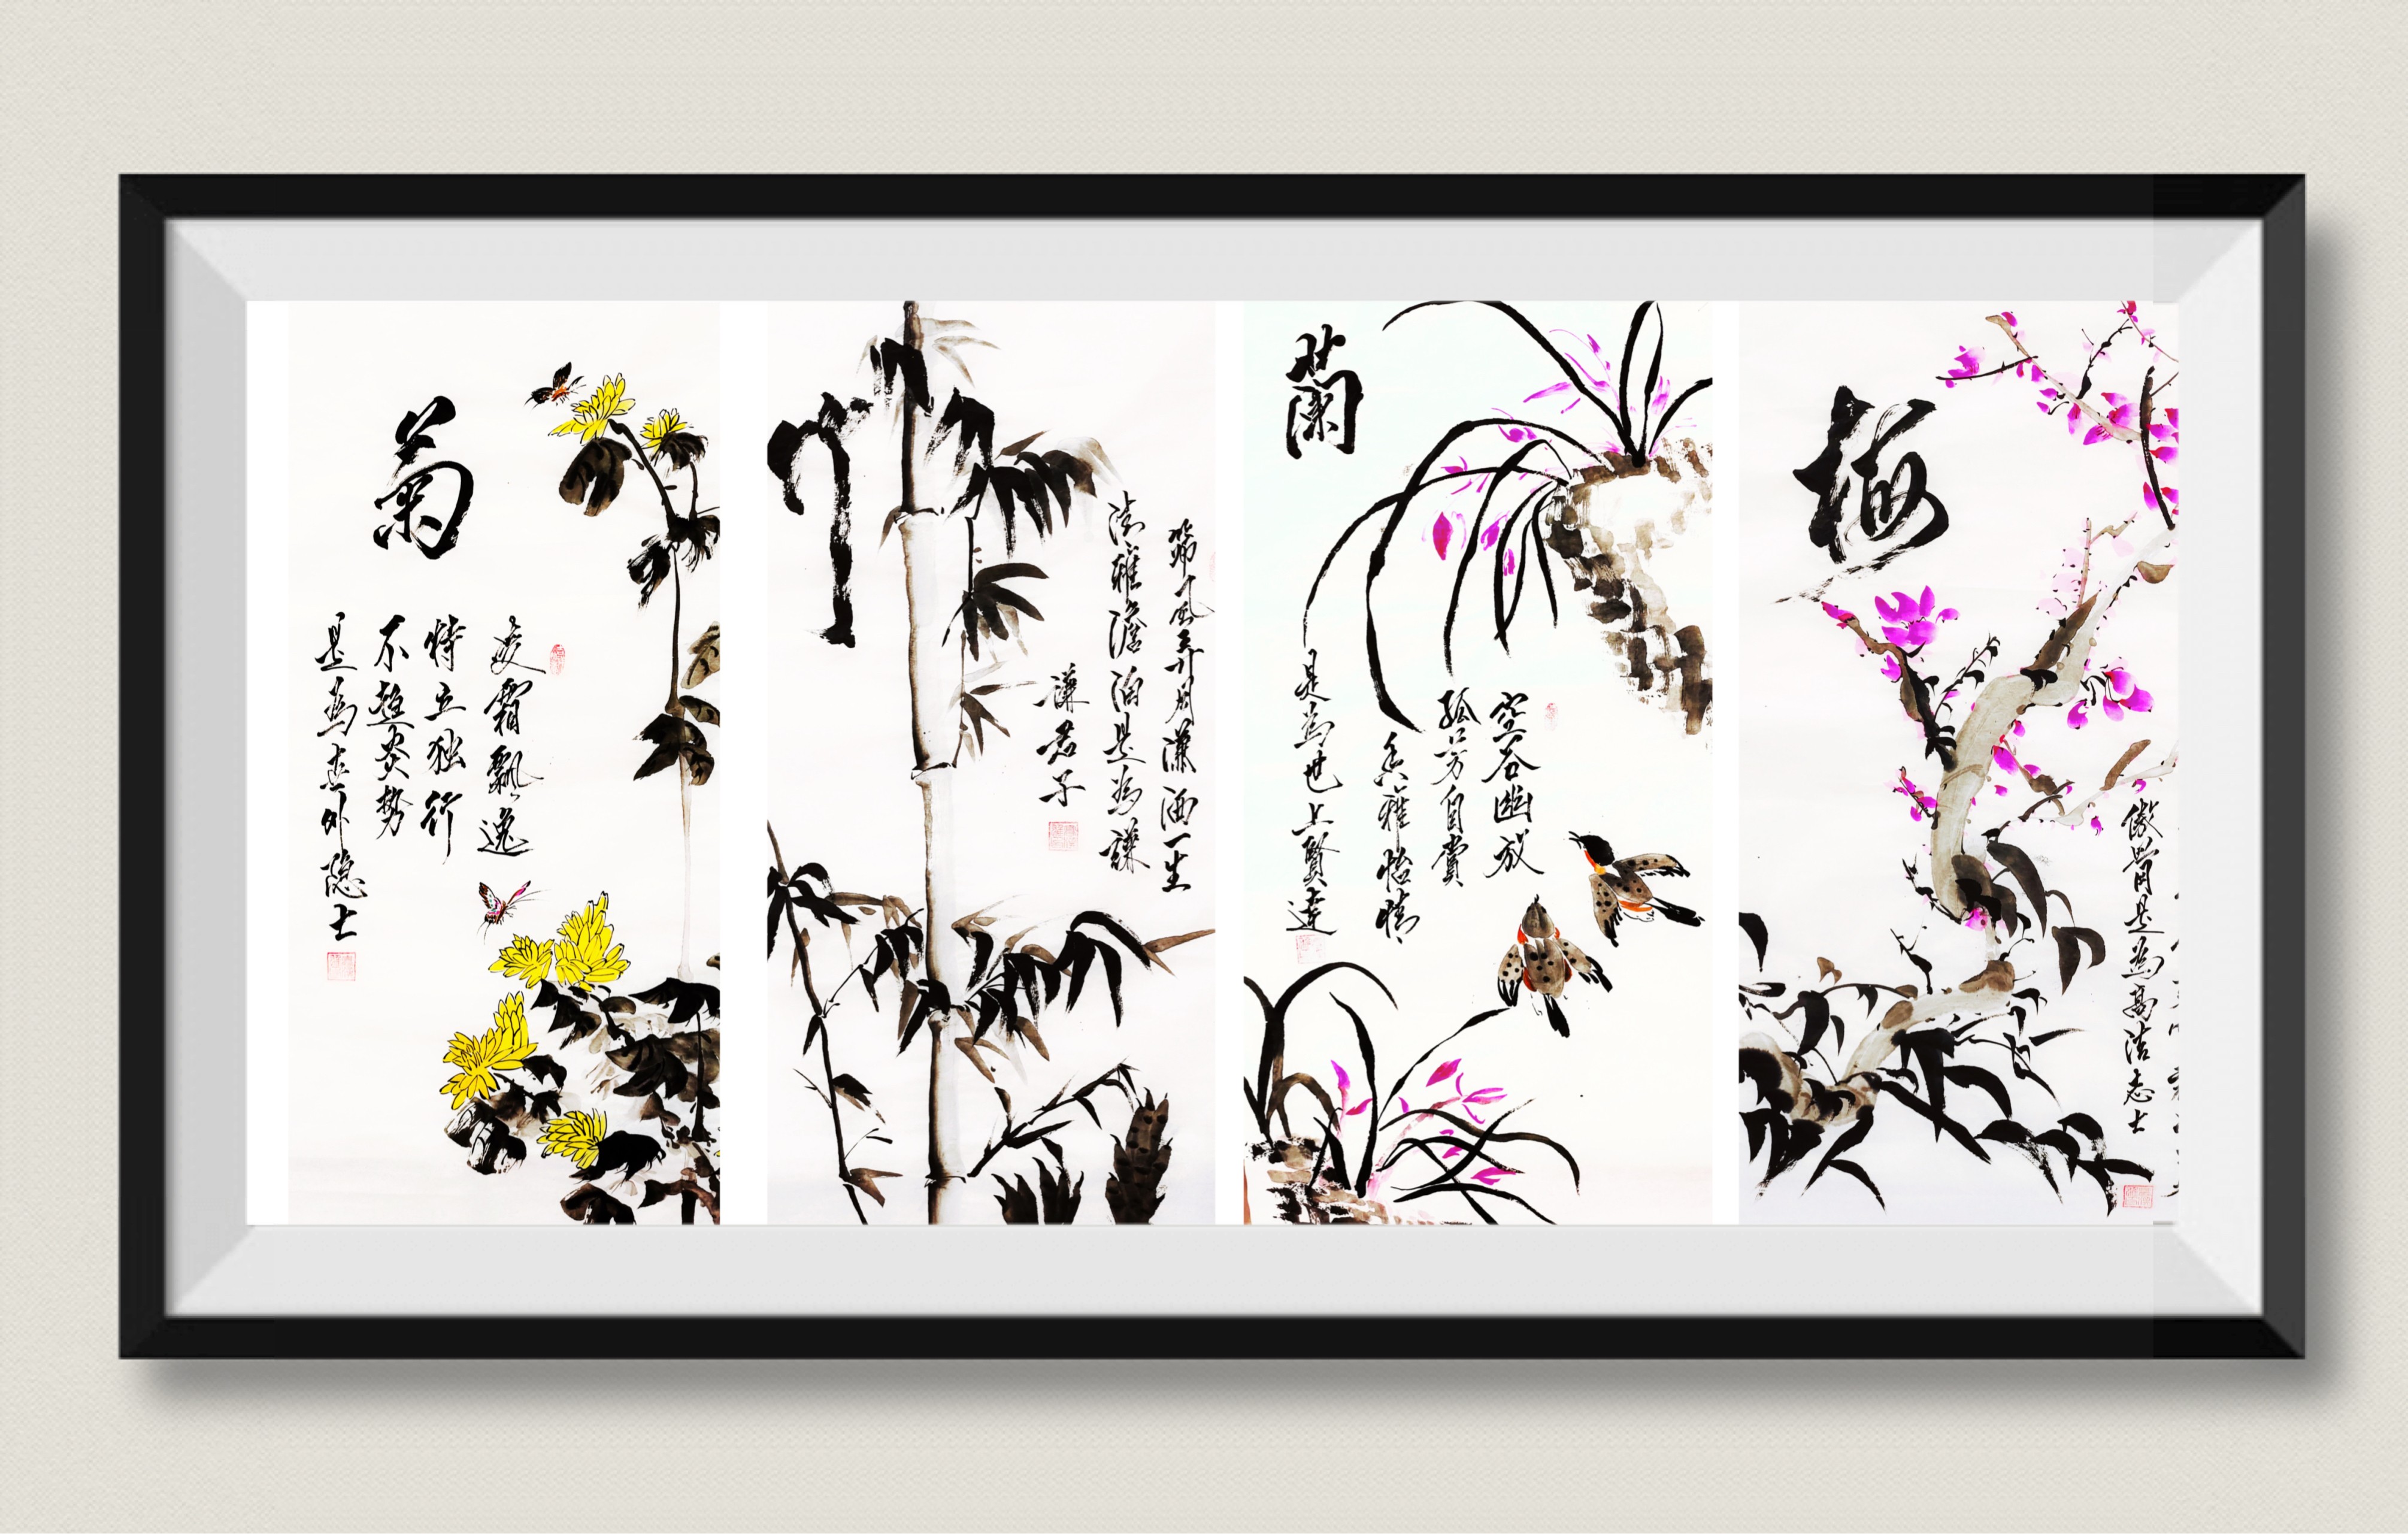 梅
傲骨是為高洁志士
蘭
空谷幽放
孤芳自賞
香雅怡情
是為世上賢達
竹
篩风弄月瀟洒一生
清雅澹泊是為謙
謙君子
菊
凌霜飄逸
特立独行
不趨炎势
是為世外隐士